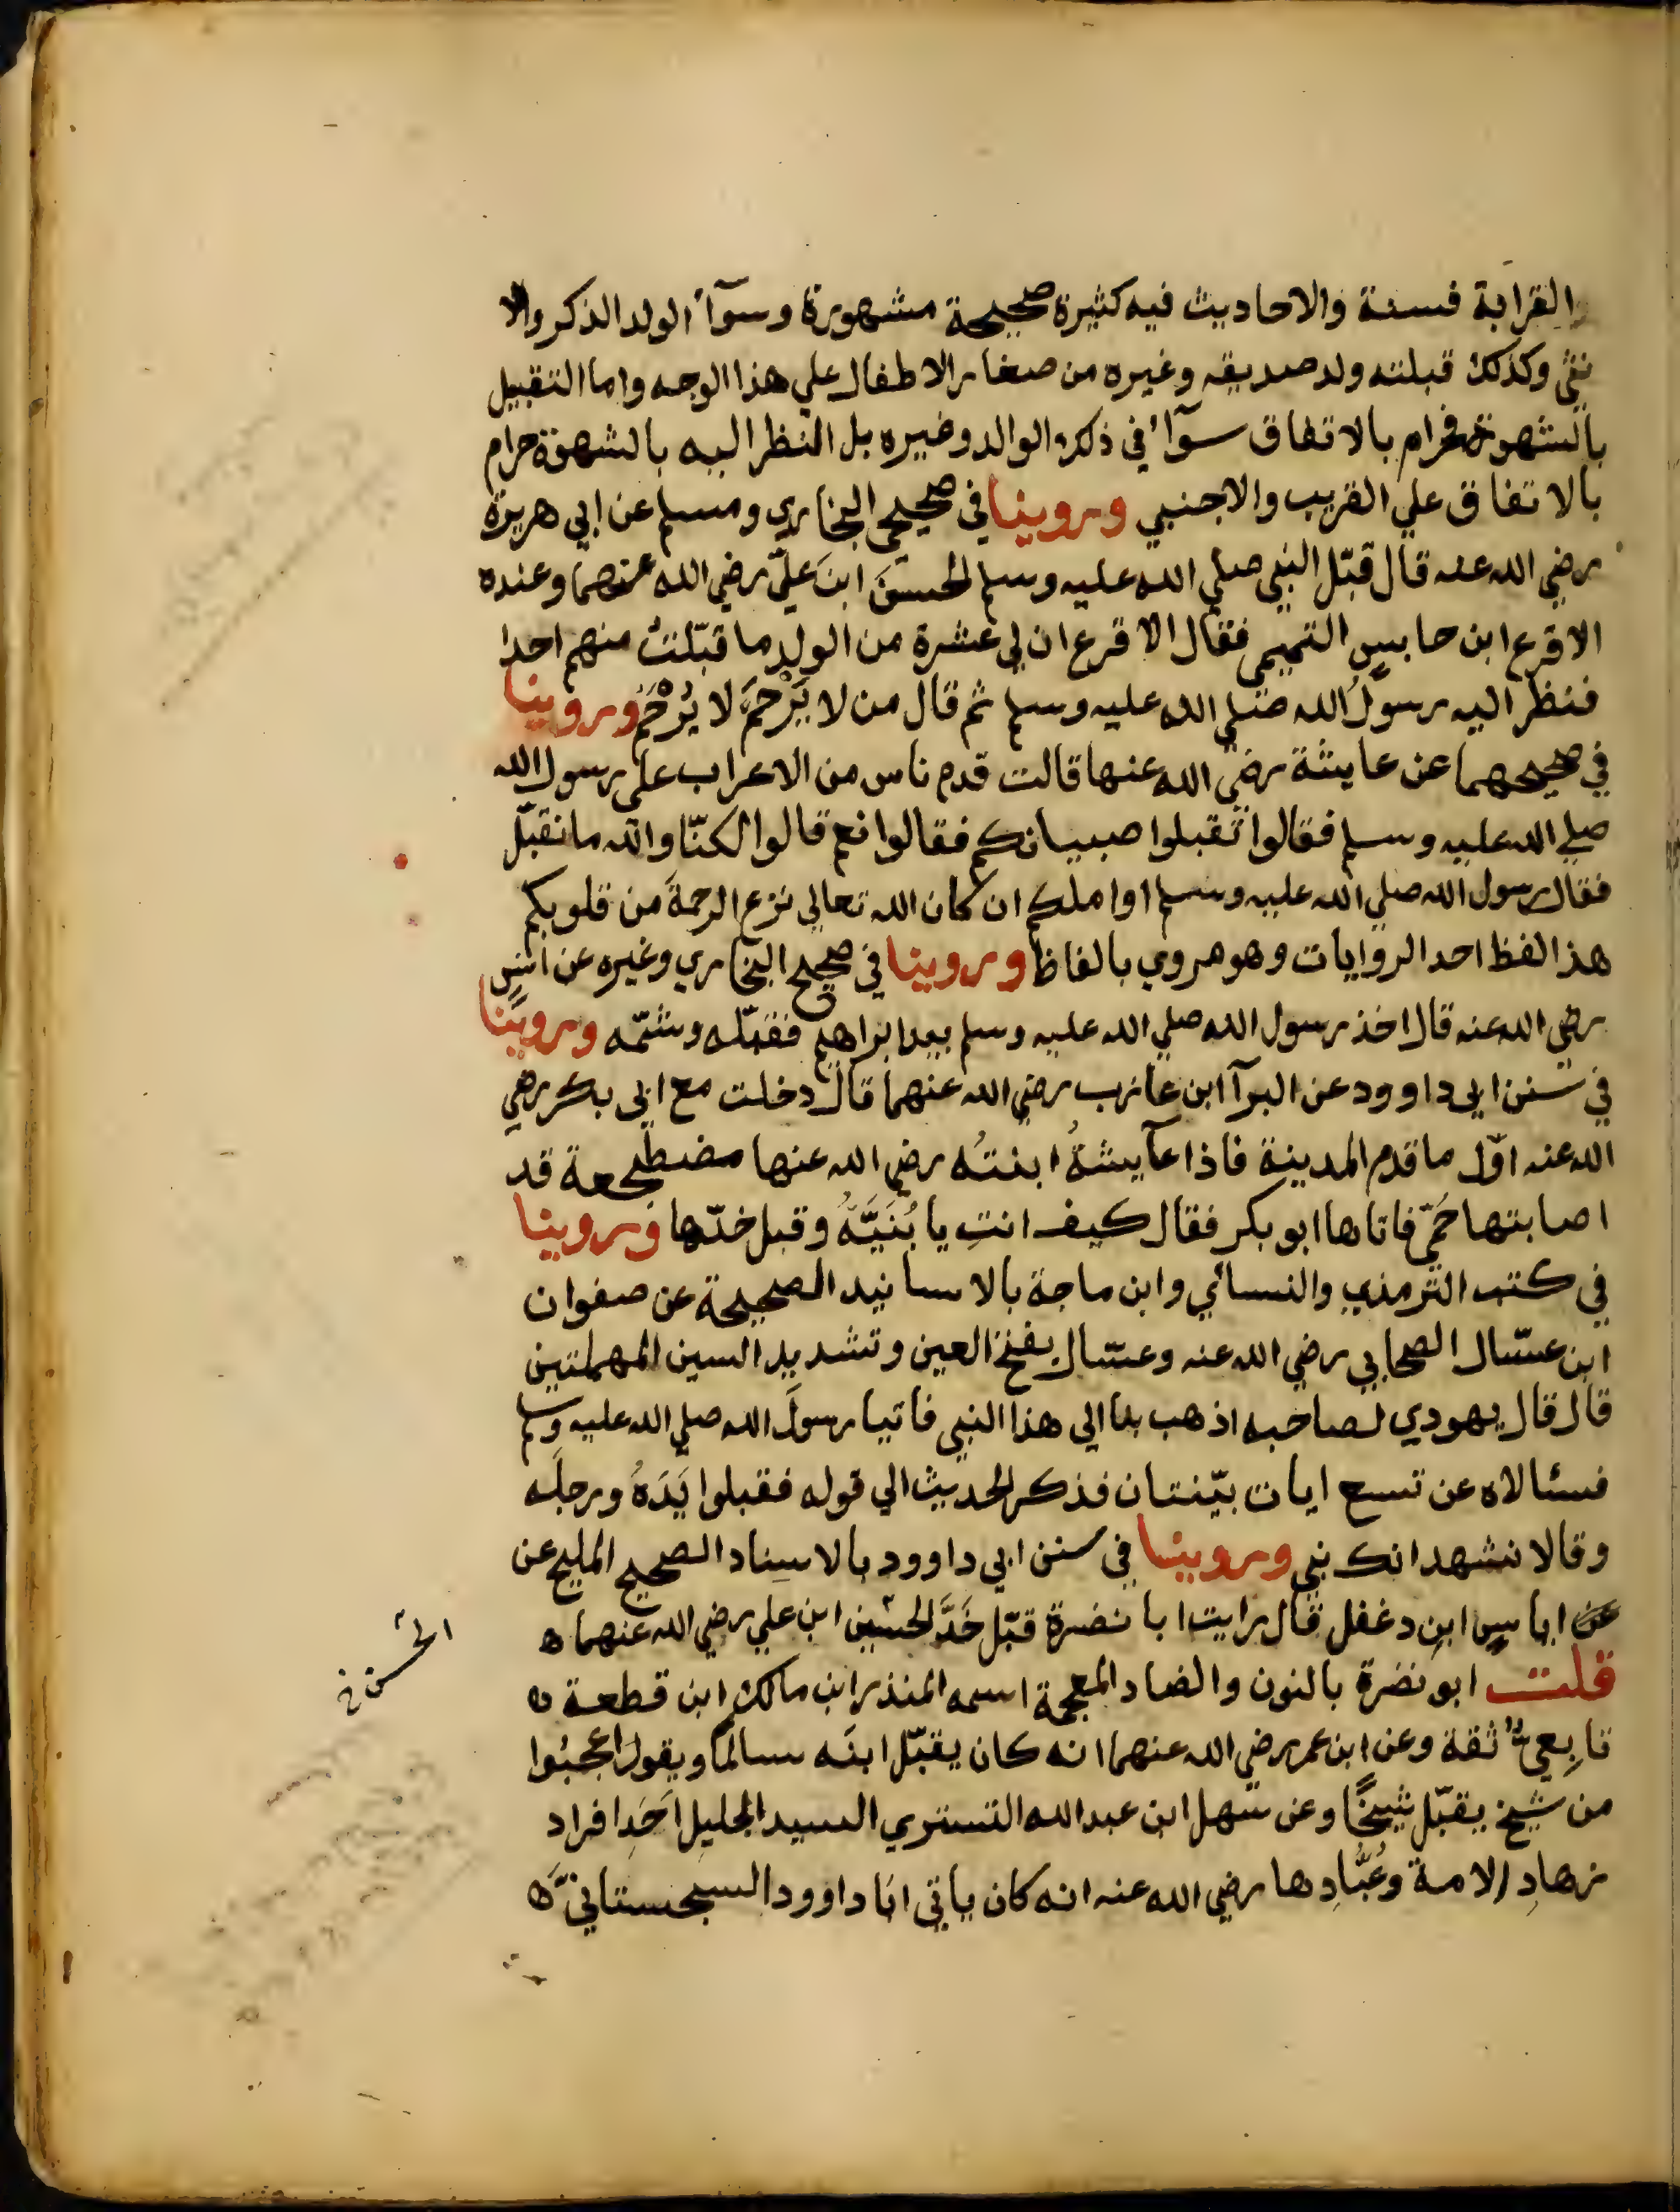 والقرابة فسنة والاحاديث فيه كثيرة صحيحة مشهورة وسوآء الولد الذكر والا
نثي وكذلك قبلته ولد صديقه وغيره من صغار الاطفال علي هذا الوجه واما التقبيل
بالشهوة فحرام بالاتفاق سوآء في ذلك الوالد وغيره بل النظر اليه بالشهوة حرام
بالاتفاق علي القريب والاجنبي وروينا في صحيحي البخاري ومسلم عن ابي هريرة
رضي الله عنه قال قبّل النبي صلي الله عليه وسلم الحسنَ ابنَ عليّ رضي الله عنهما وعنده
الاقرع ابن حابس التميمي فقال الاقرع ان لي عشرة من الولد ما قبّلت منهم احدا
فنظر اليه رسولُ الله صلي الله عليه وسلم ثم قال من لا يَرْحَمُ لا يُرْحَمُ وروينا
في صحيحهما عن عايشة رضي الله عنها قالت قدم ناس من الاعراب علي رسول الله
صلي الله عليه وسلم فقالوا تقبلوا صبيانكم فقالوا نعم قالوا لكنّا والله ما نقبّل
فقال رسول الله صلي الله عليه وسلم اوا ملك ان كان الله تعالي نزع الرحمةَ من قلوبكم
هذا لفظ احد الروايات وهو مروي بالفاظ وروينا في صحيح البخاري وغيره عن انسٍ
رضي الله عنه قال اخذ رسول الله صلي الله عليه وسلم بيد ابراهيم فقبّله وشمّه وروينا
في سنن ابي داوود عن البرآ ابن عازب رضي الله عنهما قال دخلت مع ابي بكر رضي
الله عنه اوّل ما قدم المدينة فاذا عآيشةُ ابنتُه رضي الله عنها مضطجعة قد
اصابتها حَمي فاتاها ابو بكر فقال كيف انتِ يا بُنَيَّةُ وقبل خدّها وروينا
في كتب الترمذي والنسائي وابن ماجة بالاسانيد الصحيحة عن صفوان
ابن عسّال الصحابي رضي الله عنه وعسّال بفتح العين وتشديد السين المهملتين
قال قال يهودي لصاحبه اذهب بنا الي هذا النبي فاتيا رسولَ الله صلي الله عليه وسلم
فسئالاه عن تسع ايات بيّنتان فذكر الحديث الي قوله فقبلوا يَدَهُ ورجله
وقالا نشهد انك نبي وروينا في سنن ابي داوود بالاسناد الصحيح المليح عن
عن اياسٍ ابن دغفل قال رايت ابا نضرة قبّل خَدَّ الحسين ابن علي رضي الله عنهما ه
الحسن خ
قلت ابو نضرة بالنون والضاد المعجمة اسمه المنذر ابن مالك ابن قطعة ه
تابِعيٌّ ثقة وعن ابن عمر رضي الله عنهما انه كان يقبّل ابنَه سالمًا ويقول اعجبُوا
من شيخ يقبّل شيخًا وعن سهل ابن عبد الله التستري السيد الجليل اَحَدِ افراد
زهادِ الامة وعُبَّادِها رضي الله عنه انه كان ياتي ابا داوود السجستانيَّ ه